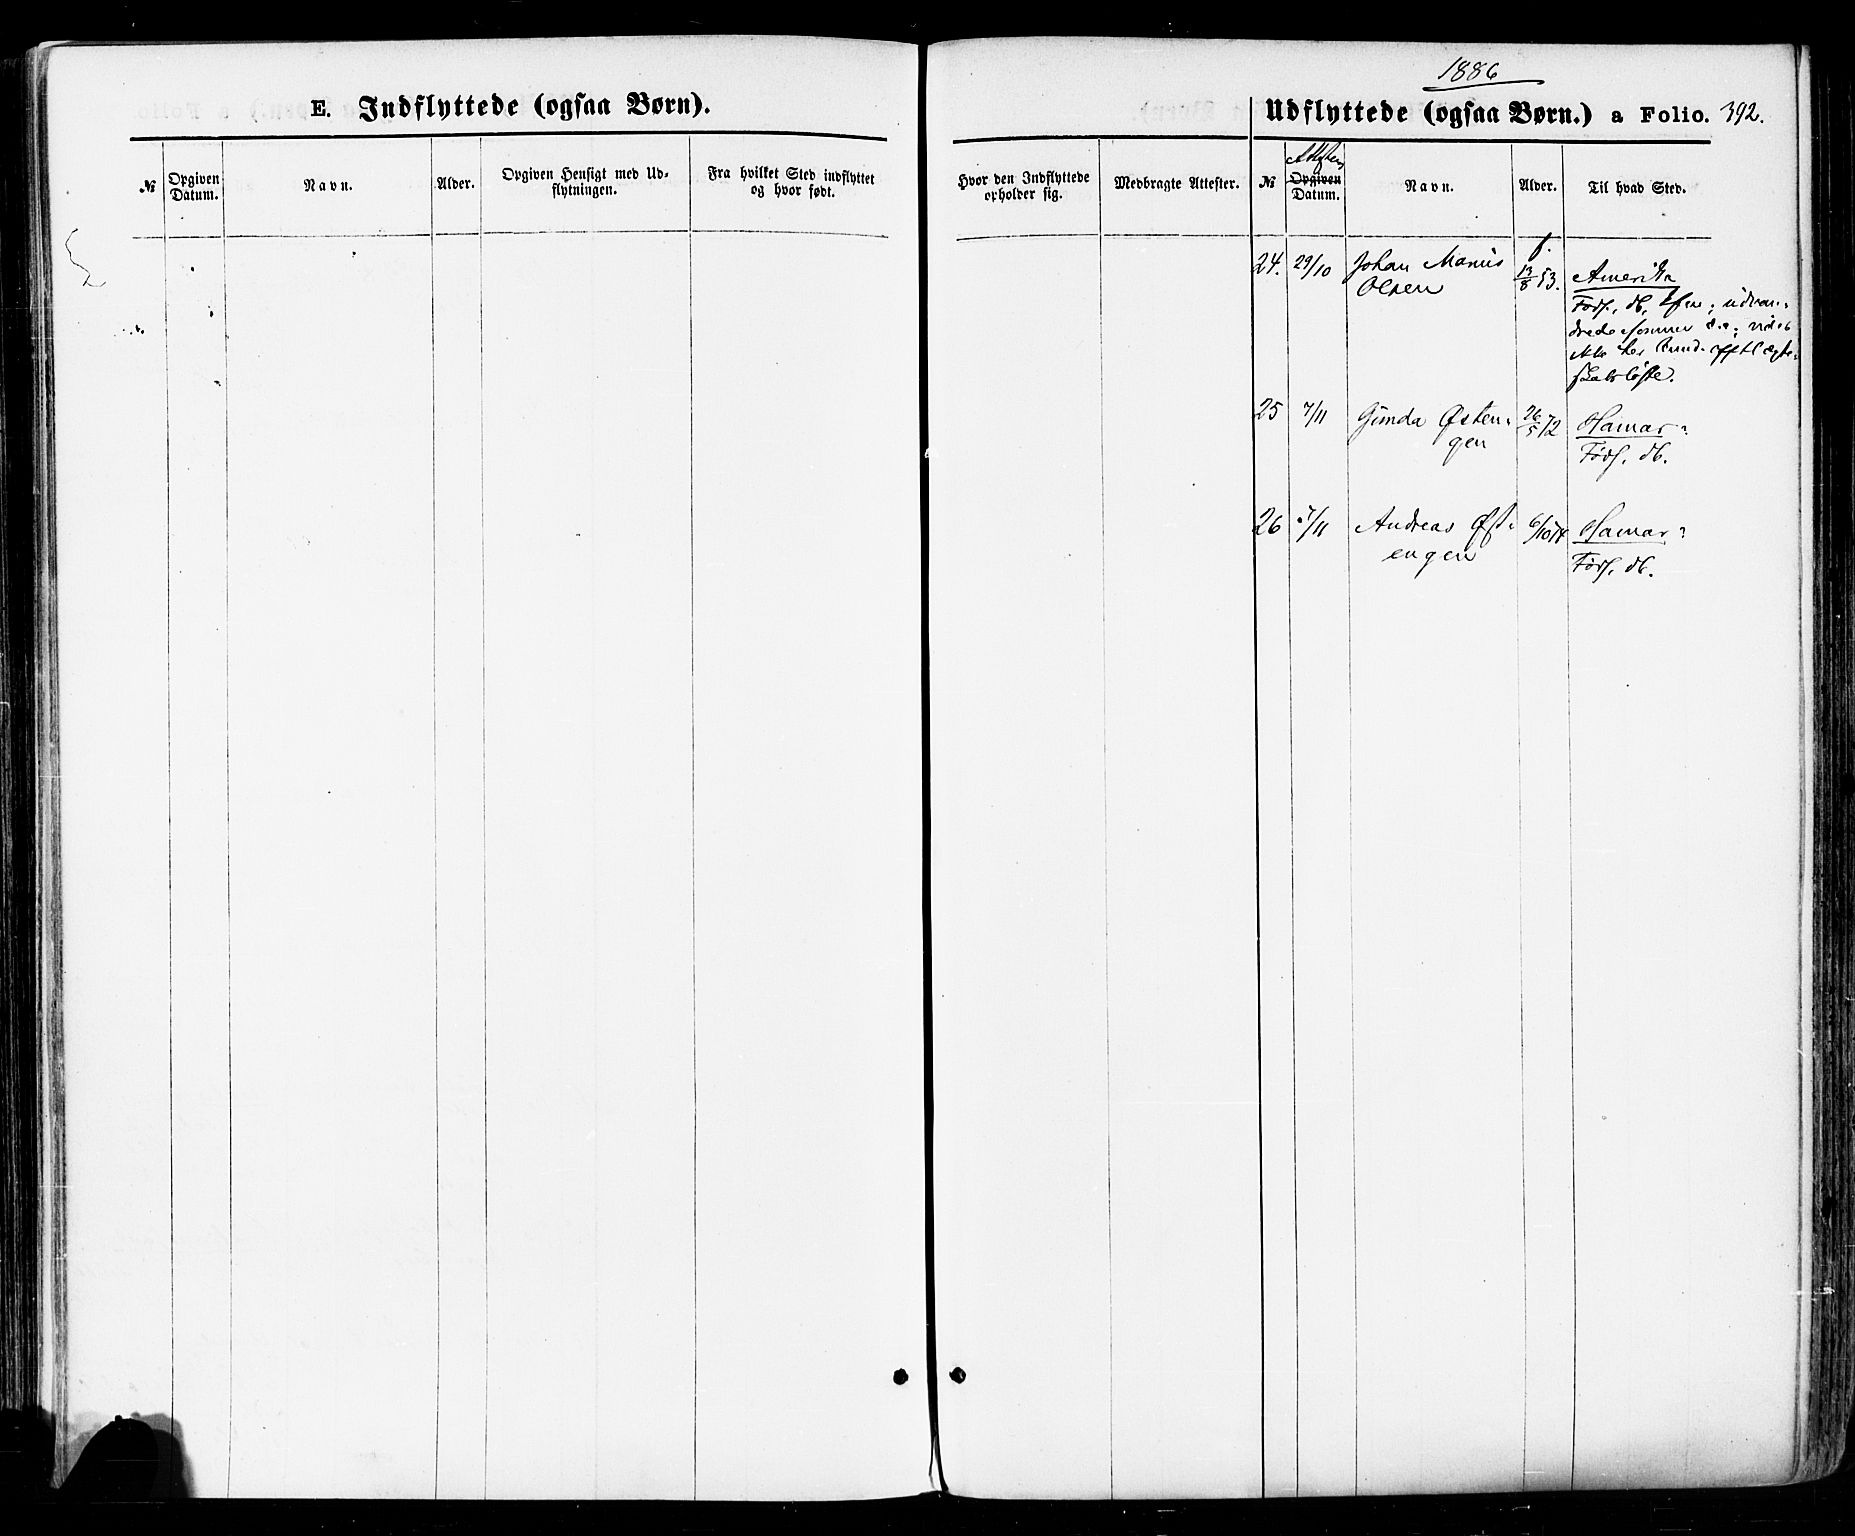 E. Indflyttede (ogsaa Børn).
№
Opgiven Datum.
Navn.
Alder.
Opgiven Hensigt med Ud-
flytningen.
Fra hvilket Sted indflyttet
og hvor født.
1886
Udflyttede (ogsaa Børn.) a Folio. 392.
Hvor den Indflyttede
opholder sig.
Medbragte Attester.
№
Opgiven
Datum.
Navn.
Alder.
Til hvad Sted.
24. 29/10 Johan Marius f. 13/8 53. Amerika
Olsen
Fødf., db,
25 7/11 Gunda Østen- 26/5 72 Hamar
gen
Fødf. db.
26 7/11 Andreas Øst- 6/10 74 Hamar
engen
Fødf. db.